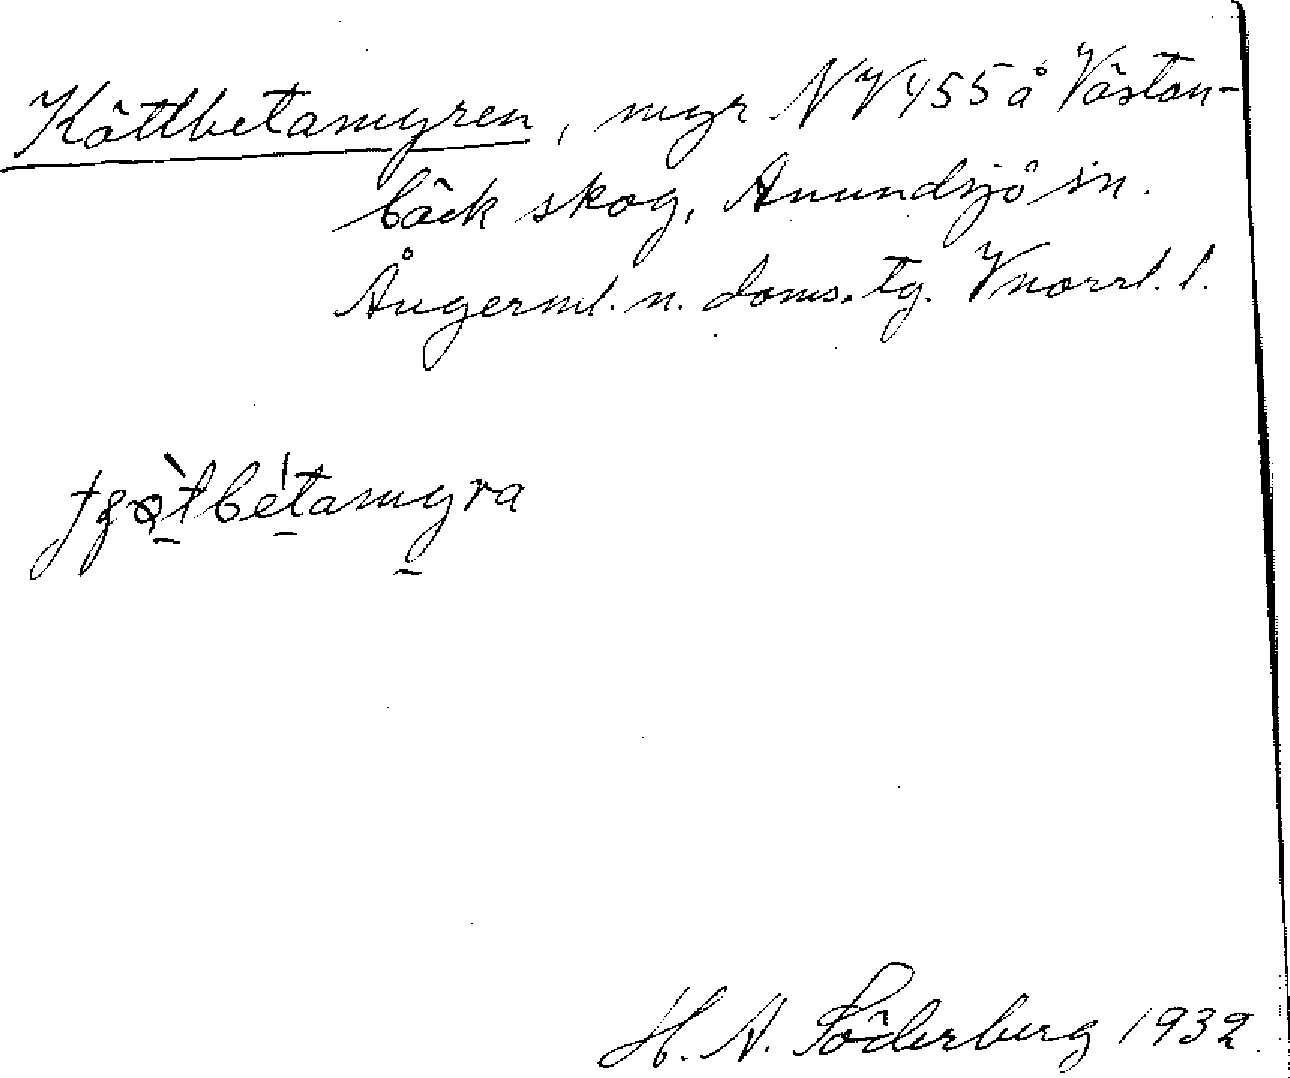 Köttbetamyren, myr NV 455 å Västan-
bäck skog, Anundsjö sn.
Ångerml. n. doms. tg. Vnorrl. l.
H. A. Söderberg 1932